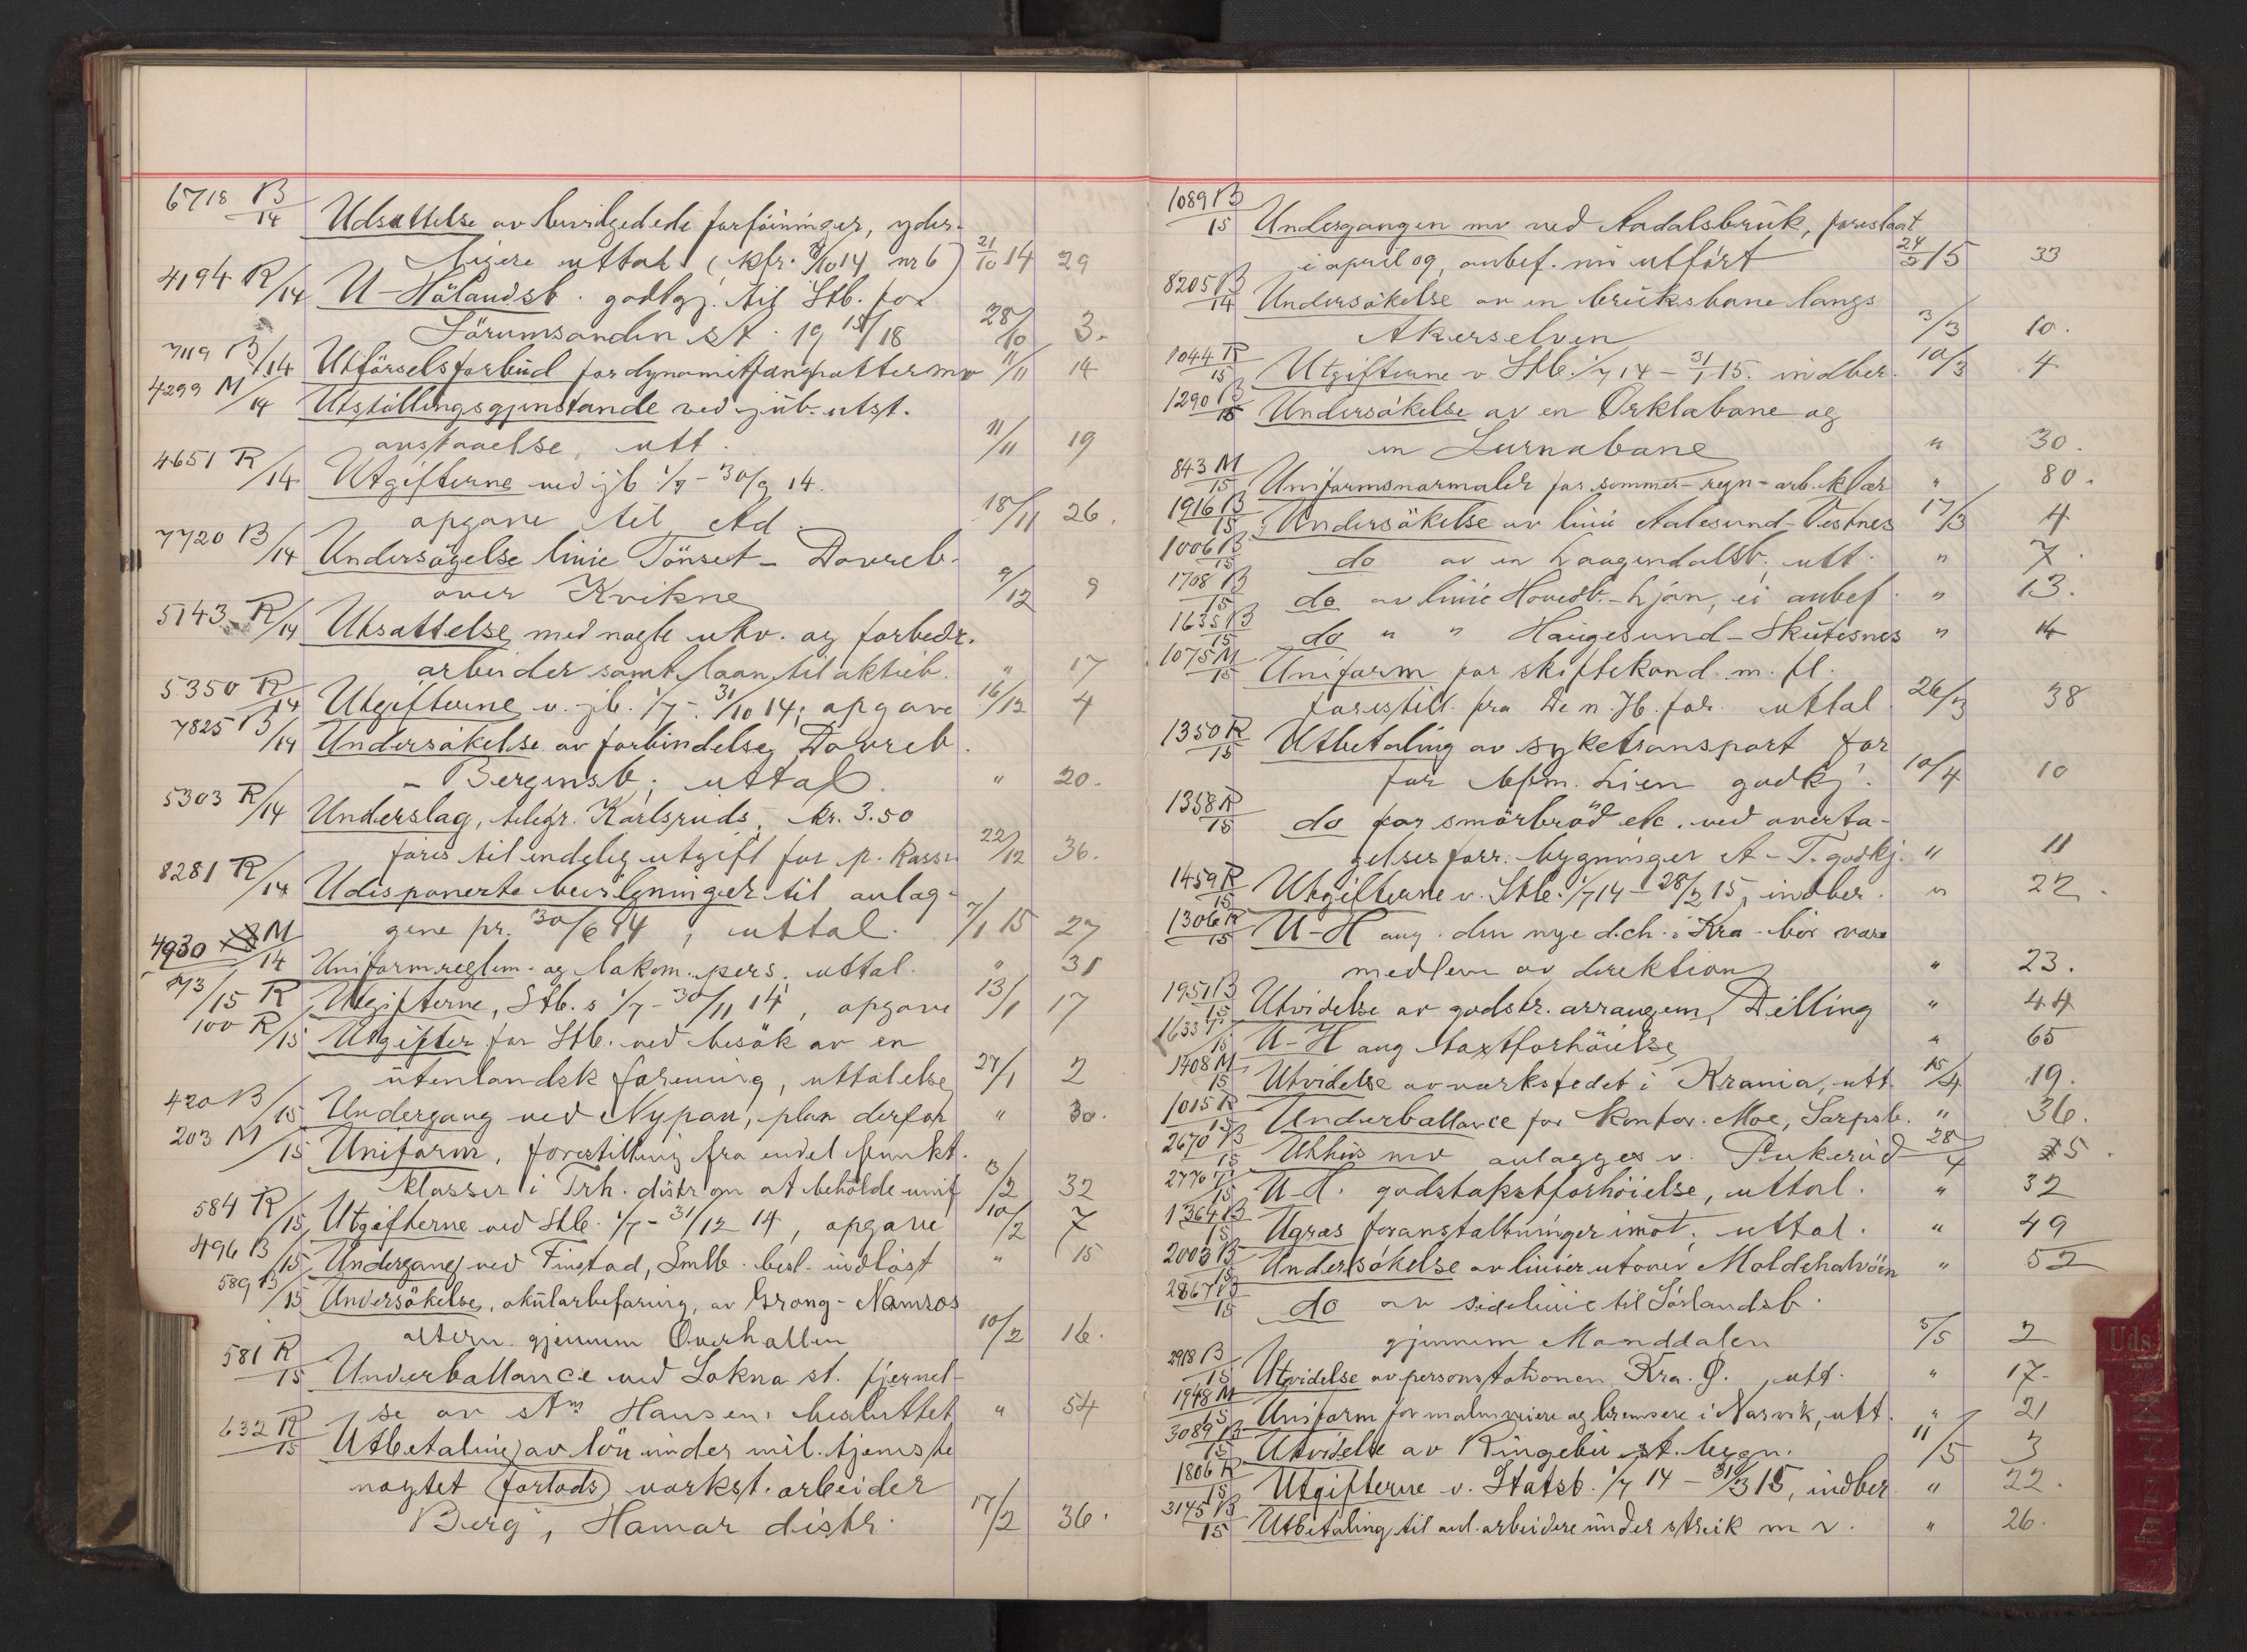 6718 B/14 Udsættelse av bevilgede forføininger, yder-
ligere uttal. (kfr. 7/10 14 nr 6) 21/10 14 29
4194 R/14 U-Hölandsb. godtgj. til Stb. for
Sörumsanden st. 19 15/18 28/10 3.
7119 B/14 Utförselsforbud for dynamit fænghætter mv 11/11 14
4299 M/14 Utstillingsgjenstande ved jub. utst.
anskaaelse, utt. 11/11 19
4651 R/14 Utgifterne ved jb 1/7 - 30/9 14.
opgave til Ad. 18/11 26.
7720 B/14 Undersøgelse linie Tönset - Dovreb.
over Kvikne 9/12 9
5143 R/14 Utsættelse med nogle utv. og forbedr.
arbeider samt laan til aktieb. " 17
5350 R/14 Utgifterne v. jb. 1/7 - 31/10 14; opgave 16/12 4
7825 B/14 Undersökelse av forbindelse Dovreb.
- Bergensb; uttal. " 20.
5303 R/14 Underslag, telegr. Karlsruds, kr. 3.50
föres til endelig utgift for p. kasse. 22/12 36.
8281 R/14 Udisponerte bevilgninger til anlæg-
gene pr. 30/6 14, uttal. 7/1 15 27
4930 M/14 Uniformreglem. og lokom. pers. uttal. " 31
73/15 R Utgifterne, Stb. s 1/7 - 30/11 14, opgave 13/1 17
100 R/15 Utgifter for Stb. ved besök av en
utenlandsk forening, uttalelse 27/1 2
420 B/15 Undergang ved Nypan, plan derfor " 30.
203 M/15 Uniform, forestilling fra endel funkt.
klasser i Trh. distr. om at beholde unif 3/2 32
584 R/15 Utgifterne ved Stb. 1/7 - 31/12 14, opgave 10/2 7
496 B/15 Undergang ved Finstad, Smlb. besl. indlöst " 15
589 B/15 Undersökelse, okularbefaring, av Grong - Namsos
altern. gjennem Overhallen 10/2 16.
581 R/15 Underballance ved Lokna st. fjernel-
se av stm Hansen, besluttet " 54
632 R/15 Utbetaling av lön under mil. tjeneste
nægtet (fortods) verkst. arbeider
Berg, Hamar distr. 17/2 36.
1089 B/15 Undergangen mv ved Aadalsbruk, foreslaat
i april 09, anbef. nu utfört 24/2 15 33
8205 B/14 Undersökelse av en bruksbane langs
Akerselven 3/3 10.
1044 R/15 Utgifterne v. Stb. 1/7 14 - 31/1 15. indber. 10/3 4
1290 B/15 Undersökelse av en Orklabane og
en Surnabane " 30.
843 M/15 Uniformsnormaler for sommer-regn-arb. klær " 80.
1916 B/15 Undersökelse av linie Aalesund-Vestnes 17/3 4
1006 B/15 do av en Laagendalsb. utt. " 7.
1708 B/15 do av linie Hovedb. - Ljan, ei anbef. " 13.
1635 B/15 do " " Haugesund - Skutesnes " 14
1075 M/15 Uniform for skiftekond. m. fl.
forestill. fra De n. Jb. for. uttal. 26/3 38
1350 R/15 Utbetaling av syketransport for
for bfm. Lien godkj. 10/4 10
1358 R/15 do for smörbröd etc. ved overta-
gelsesforr. bygninger A-T. godkj. " 11
1459 R/15 Utgifterne v. Stb. 1/7 14 - 28/2 15, indber. " 22.
1306 R/15 U-H ang. den nye d.ch. i Kra. bör være
medlem av direktion " 23.
1951 B/15 Utvidelse av godstr. arrangem, Dilling " 44
1633 T/15 U-H ang taxtforhöielse " 65
1408 M/15 Utvidelse av verkstedet i Krania, utt. 15/4 19.
1015 R/15 Underballance for kontor. Moe, Sarpsb. " 36.
2670 B/15 Uthus mv anlægges v. Rukerud 28/4 5.
2770 T/15 U-H. godstakstforhöielse, uttal. " 32
1364 B/15 Ugræs foranstaltninger imot, uttal. " 49
2003 B/15 Undersökelse av linier utover Moldehalvöen " 52
2867 B/15 do av sidelinie til Sörlandsb.
gjennem Manddalen 5/5 2
2918 B/15 Utvidelse av personstationen Kra. Ø., utt. " 17
1948 M/15 Uniform for malmveiere og bremsere i Narvik, utt. " 21
3089 B/15 Utvidelse av Ringebu st. bygn. 11/5 3
1806 R/15 Utgifterne v. Statsb. 1/7 14 - 31/3 15, indber. " 22.
3145 B/15 Utbetaling til anl. arbeidere under streik m v. " 26.
Uds